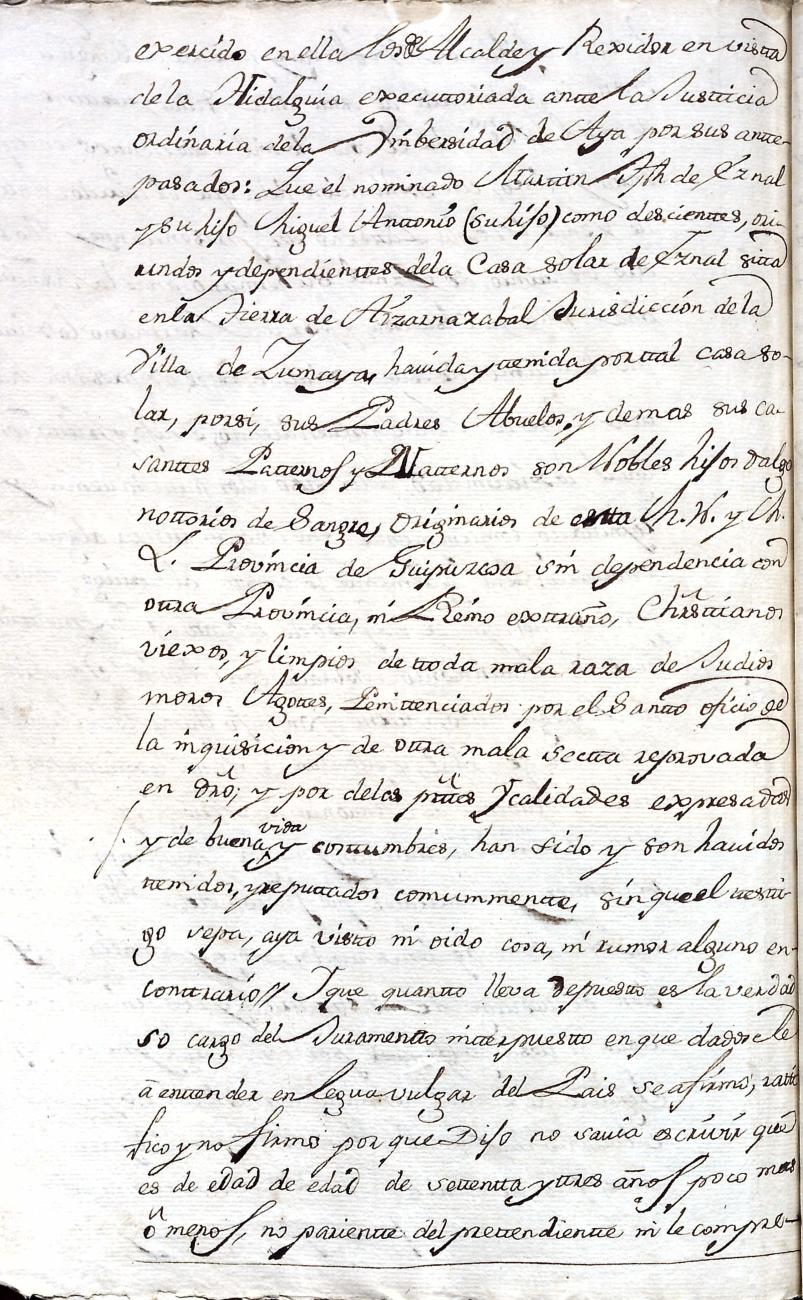 exercido en ella los de Alcalde y Rexidor en vistta
de la Hidalguia executtoriada antte la Justticia
ordinaria de la Vnibersidad de Aya por sus antte-
pasados: Que el nominado Marttin Jph de Yznal
y su hijo Miguel Anttonio (su hijo) como descienttes, ori-
undos y dependienttes de la Casa solar de Yznal sitta
en la Tierra de Arzarnazabal Jurisdiccion de la
Villa de Zumaya, havida y ttenida por ttal casa so-
lar, por si, sus Padres Abuelos, y demas sus ca-
santtes Patternos y Matternos son Nobles hijos dalgo
nottorios de Sangre, originarios de estta M. N. y M.
L. Provincia de Guipuzcoa sin dependencia con
ottra Provincia, ni Reino exttraño, Christtianos
viexos, y limpios de ttoda mala raza de Judios
moros Agottes, Penittenciados por el Santto oficio de
la inquisicion y de ottra mala sectta reprovada
en dro; y por de las pttes y calidades expresadas
y de buena vida y costtumbres, han sido y son havidos
ttenidos, y reputtados comunmentte, sin que el testti-
go sepa, aya vistto ni oido cosa, ni rumor alguno en
conttrario // Y que quantto lleva depuestto es la verdad
so cargo del Juramentto intterpuestto en que dadosele
a enttender en legua vulgar del Pais se afirmó, ratti
fico y no firmó por que Dijo no savia escrivir que
es de edad de edad de settentta y ttres años poco mas
ó menos, no parientte del prettendientte ni le compre-